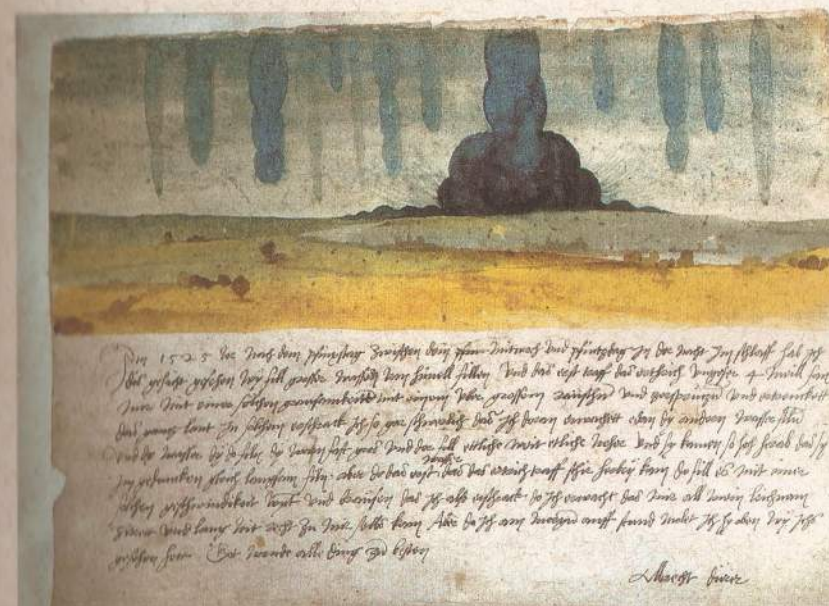 Im 1525 Jor nach dem pfinxstag zwischen dem mitwoch und pfintzdag in der nacht im schlaff hab ich
dis gesicht gesehen wy fill grosser wassern vom himell fillen Und das erst traff das erthrich ungefer 4 meill fan
mir mit einer solchen grausamkeitt mit einem uber grossem raüschn und zersprützn und ertrenckett
das gancz lant In solchem erschrack ich so gar schwerlich das ich doran erwachett edan dy andern wasser filn
Und dy wasser dy do filn dy warn fast gros und der fill ettliche weit etliche neher und sy kamen so hoch herab das sy
im gedancken gleich langsam filn aber do das erst wasser das das ertrich traff schir herbey kam do fill es mit einer
solchen geschwindikeit wynt und braüsen das ich also erschrack do ich erwacht das mir all mein leichnam
zitrett und lang nit recht zu mir selbs kam Aber do ich am morgen auff stund molet ich hy oben wy ichs
gesehen hett Got wende alle ding zu besten
Albrecht dürer